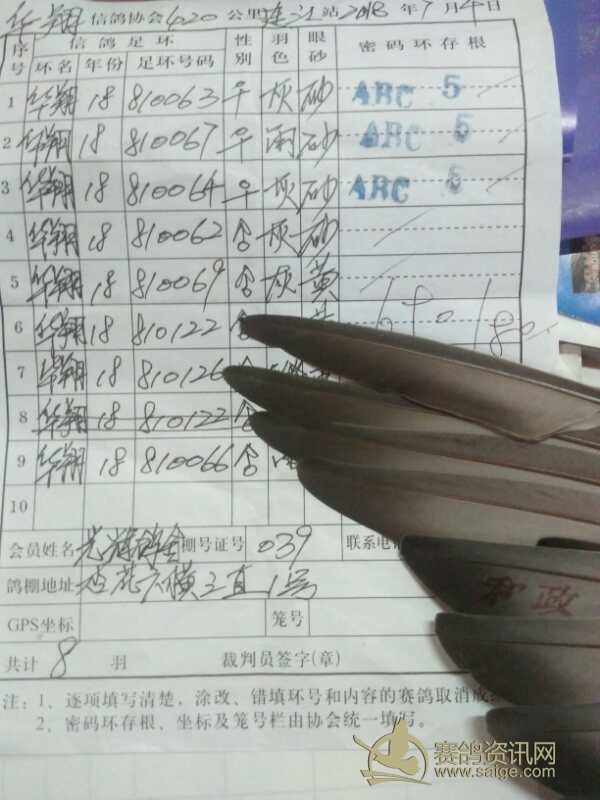 华翔信鸽协会620公里连江站2018年7月4日
序号 信鸽足环 性别 羽色 眼砂 密码环存根
环名 年份 足环号码
1 华翔 18 810063 灰 砂 ABC 5
2 华翔 18 810067 雨 砂 ABC 5
3 华翔 18 810064 灰 砂 ABC 5
4 华翔 18 810062 灰 砂
5 华翔 18 810069 灰 黄
6 华翔 18 810122
7 华翔 18 810126
8 华翔 18 810122
9 华翔 18 810066
10
会员姓名 棚号证号 039 联系电
鸽棚地址 1号
GPS坐标 笼号
共计 8 羽 裁判员签字(章)
注:1、逐项填写清楚,涂改、错填环号和内容的赛鸽取消成
2、密码环存根、坐标及笼号栏由协会统一填写。
和政
赛鸽资讯网
www.saige.com